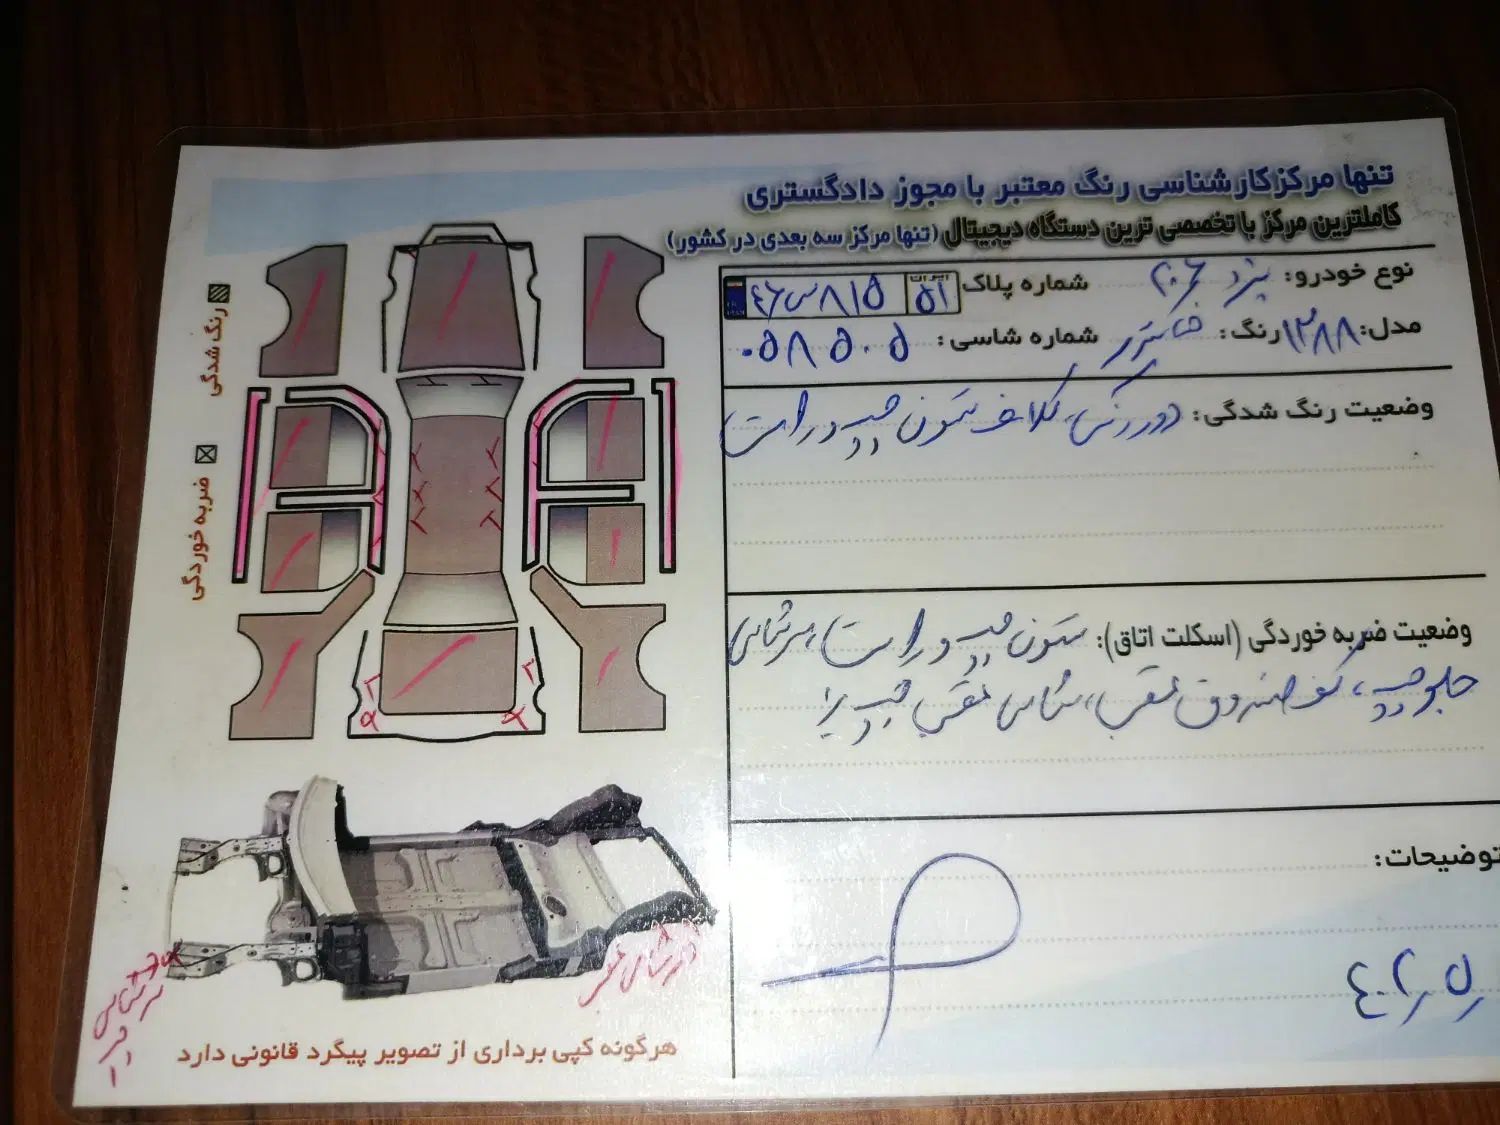 تنها مرکز کارشناسی رنگ معتبر با مجوز دادگستری
کاملترین مرکز با تخصصی ترین دستگاه دیجیتال (تنها مرکز سه بعدی در کشور)
نوع خودرو: پژو ۲۰۶ شماره پلاک ۴۶س۸۱۵ ایران ۵۱
مدل: ۱۳۸۸ رنگ: شماره شاسی: ۰۵۸۵۰۵
وضعیت رنگ شدگی: دور رنگ، کلاف ستون چپ و راست
وضعیت ضربه خوردگی (اسکلت اتاق): ستون چپ و راست، سرشاسی
جلو چپ، کف صندوق عقب، شاسی عقب چپ
توضیحات:
رنگ شدگی
ضربه خوردگی
سرشاسی
چپ
شاسی عقب
هرگونه کپی برداری از تصویر پیگرد قانونی دارد